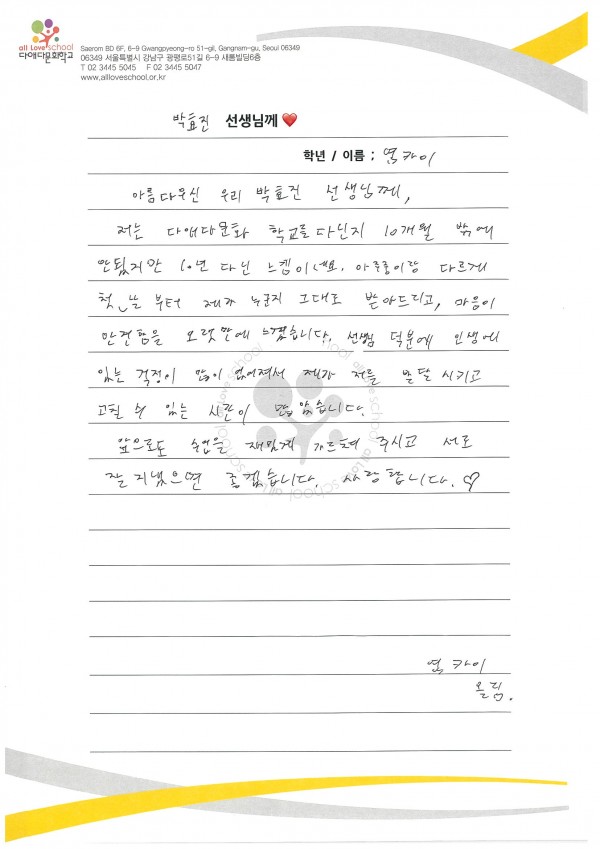 all Love school
다애다문화학교
Saerom BD 6F, 6-9 Gwangpyeong-ro 51-gil, Gangnam-gu, Seoul 06349
06349 서울특별시 강남구 광평로51길 6-9 새롬빌딩6층
T 02 3445 5045 F 02 3445 5047
www.alloveschool.or.kr
박효진 선생님께 ❤️
학년 / 이름 ; 연카이
아름다우신 우리 박효진 선생님께,
저는 다애다문화 학교를 다닌지 10개월 밖에
안됬지만 10년 다닌 느낌이네요. 다르게
첫 날 부터 제가 누군지 그대로 받아드리고, 마음이
안견함을 오랫만에 느꼈습니다. 선생님 덕분에 인생에
있는 걱정이 많이 없어져서 제가 저를 발달 시키고
고칠 수 있는 시간이 많았습니다.
앞으로도 수업을 재밌게 가르쳐 주시고 서로
잘 지냈으면 좋겠습니다. 사랑합니다. ♡
연카이
올림.
all Love school
all Love school
all Love school